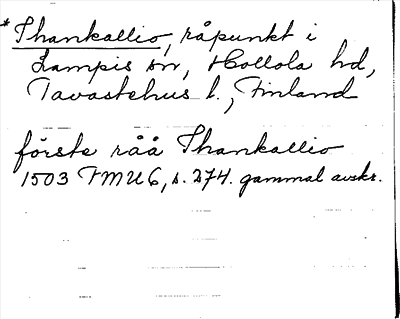 *Ihankallio, råpunkt i
Lampis sn, Hollola hd,
Tavastehus l., Finland
förste råå Ihankallio
1503 FMU 6, s. 274. gammal avskr.